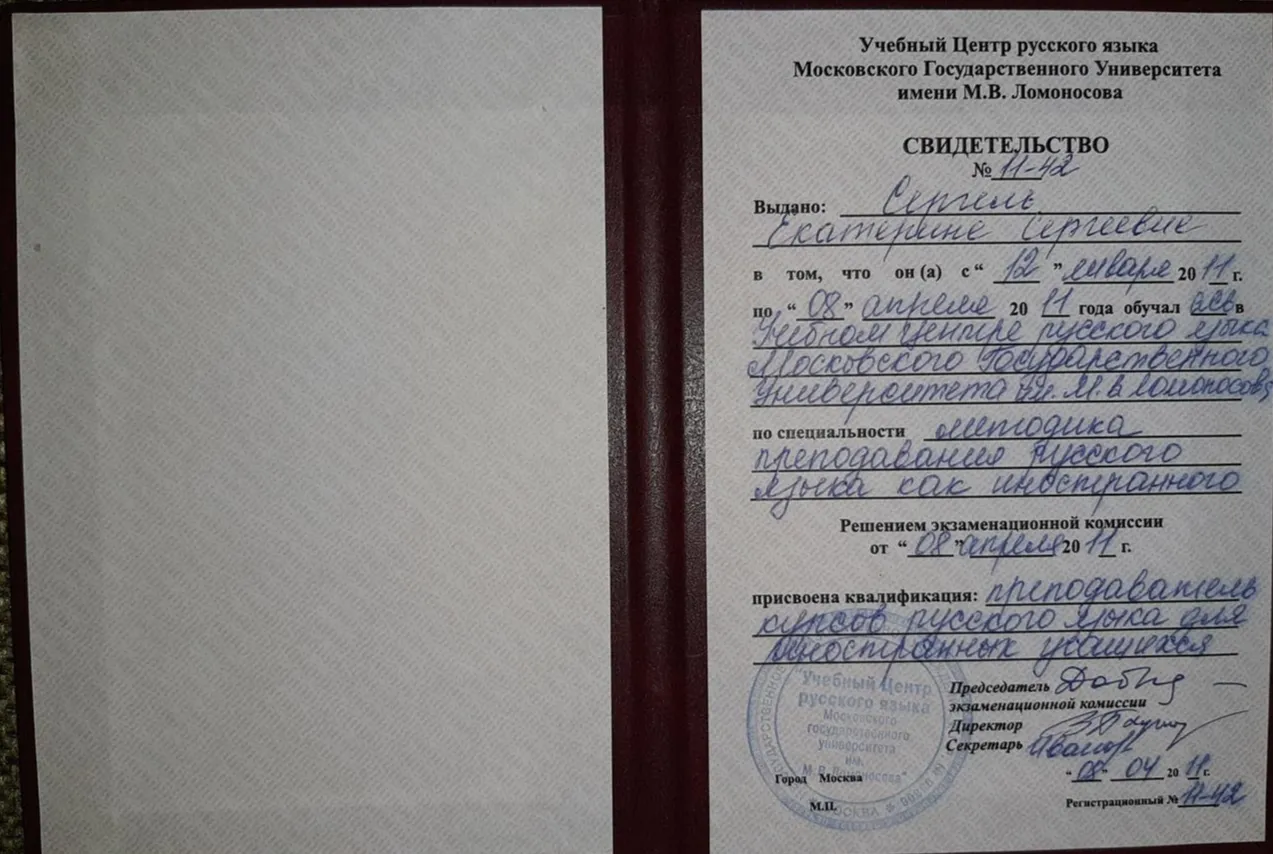 Учебный Центр русского языка
Московского Государственного Университета
имени М.В. Ломоносова
СВИДЕТЕЛЬСТВО
№ 11-42
Выдано: Сергель
Екатерине Сергеевне
в том, что он (а) с “ 12 ” января 20 11 г.
по “ 08 ” апреля 20 11 года обучал ась в
Учебном центре русского языка
Московского Государственного
Университета им. М.В Ломоносова
по специальности методика
преподавания русского
языка как иностранного
Решением экзаменационной комиссии
от “ 08 ” апреля 20 11 г.
присвоена квалификация: преподаватель
курсов русского языка для
иностранных учащихся
"Учебный Центр
русского языка
Московского
государственного
университета
им.
М.В. Ломоносова"
МОСКВА
Председатель
экзаменационной комиссии
Директор
Секретарь
Город Москва
“ 08 ” 04 20 11 г.
М.П.
Регистрационный № 11-42